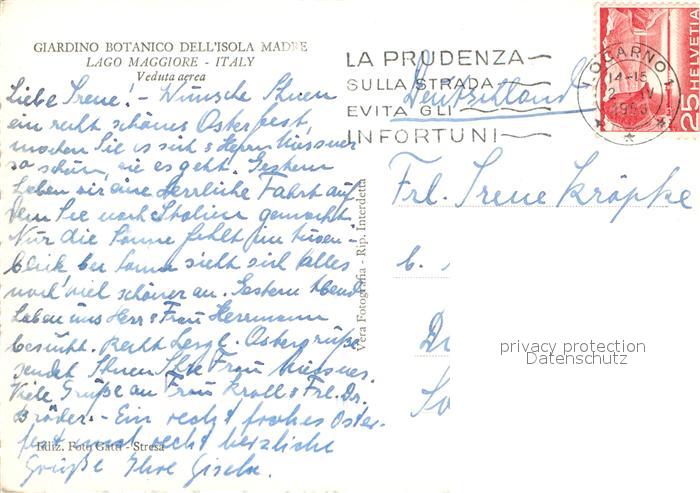 GIARDINO BOTANICO DELL'ISOLA MADRE
LAGO MAGGIORE - ITALY
Veduta aerea
Liebe Irene! - Wünsche Ihnen
ein recht schönes Osterfest,
machen Sie es sich &
so schön, wie es geht. Gestern
haben wir eine herrliche Fahrt auf
dem See nach Italien gemacht.
Nur die Sonne fehlt im
blick bei Sonne sieht sich alles
noch viel schöner an. Gestern Abend
haben uns Herr & Frau Herrmann
besucht. Recht herzl. Ostergrüße
sendet Ihnen Ihre Frau
Viele Grüße an Frau Kroll & Frl. Dr.
Bröder. - Ein recht frohes Oster-
fest und recht herzliche
Grüße Ihre Gisela.
Ediz. Foto Gatti - Stresa
Vera Fotografia - Rip. Interdetta
LA PRUDENZA
SULLA STRADA
EVITA GLI
INFORTUNI
LOCARNO 1
14-15
HELVETIA
25
Deutschland
Frl. Irene Kröpke
b.
privacy protection
Datenschutz